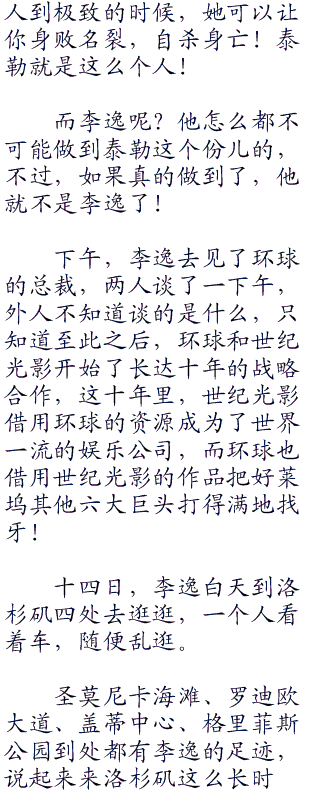 人到极致的时候，她可以让
你身败名裂，自杀身亡！泰
勒就是这么个人！
而李逸呢？他怎么都不
可能做到泰勒这个份儿的，
不过，如果真的做到了，他
就不是李逸了！
下午，李逸去见了环球
的总裁，两人谈了一下午，
外人不知道谈的是什么，只
知道至此之后，环球和世纪
光影开始了长达十年的战略
合作，这十年里，世纪光影
借用环球的资源成为了世界
一流的娱乐公司，而环球也
借用世纪光影的作品把好莱
坞其他六大巨头打得满地找
牙！
十四日，李逸白天到洛
杉矶四处去逛逛，一个人看
着车，随便乱逛。
圣莫尼卡海滩、罗迪欧
大道、盖蒂中心、格里菲斯
公园到处都有李逸的足迹，
说起来来洛杉矶这么长时